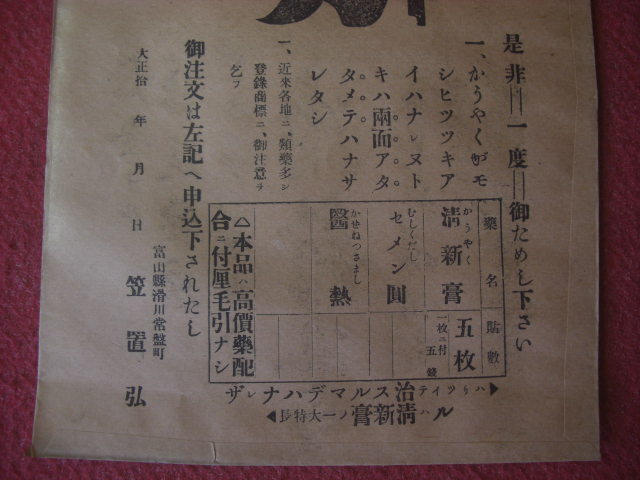 是非＝一度＝御ためし下さい
一、かうやくガモ
シヒツツキア
イハナレヌト
キハ兩面アタ
タメテハナサ
レタシ
一、近來各地ニ、類藥多シ
登錄商標ニ、御注意ヲ
乞フ
藥名 貼數
かうやく
清新膏 五枚
一枚ニ付五錢
むしくだし
セメン圓
かぜねつさまし
醫熱
△本品ハ高價藥配
合ニ付厘毛引ナシ
◀ハリツイテ治スルマデハナレザ
ルハ清新膏ノ一大特長▶
御注文は左記へ申込下されたし
大正拾 年 月 日
富山縣滑川常盤町
笠置弘